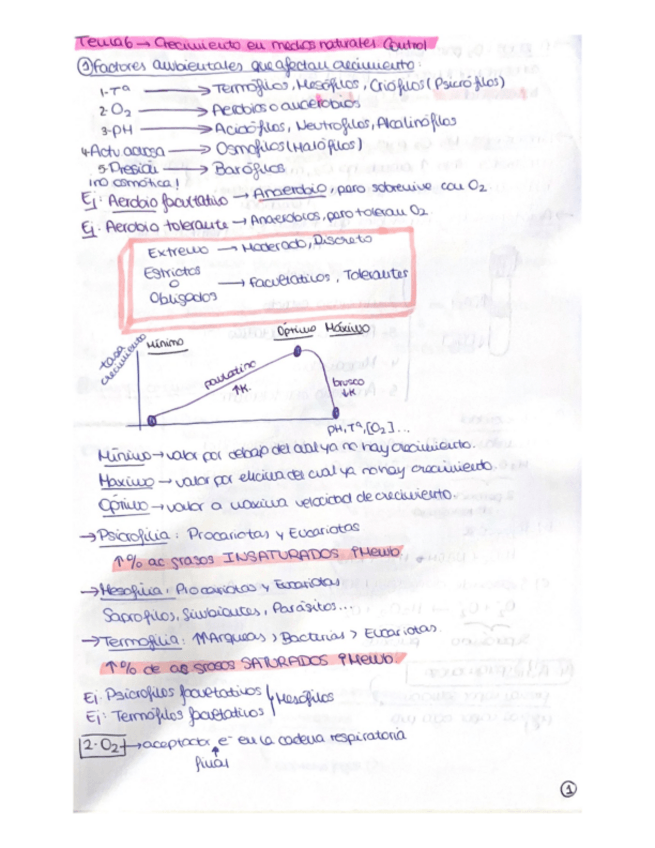 Tema 6 → Crecimiento en medios naturales. Control
① Factores ambientales que afectan crecimiento:
1-Tª → Termófilos, Mesófilos, Criófilos (Psicrófilos)
2-O₂ → Aerobios o anaerobios
3-pH → Acidófilos, Neutrófilos, Alcalinófilos
4-Act. acuosa → Osmófilos (Halófilos)
5-Presión → Barófilos
¡no osmótica!
Ej: Aerobio facultativo → Anaerobio, pero sobrevive con O₂
Ej: Aerobio tolerante → Anaerobios, pero toleran O₂
Extremo → Moderado, Discreto
Estrictos
o → Facultativos, Tolerantes
Obligados
tasa crecimiento
Mínimo
Óptimo Máximo
paulatino
↑K.
brusco
↓K
pH, Tª, [O₂]...
Mínimo → valor por debajo del cual ya no hay crecimiento.
Maximo → valor por encima del cual ya no hay crecimiento.
Óptimo → valor a máxima velocidad de crecimiento.
→ Psicrofilia: Procariotas y Eucariotas
↑% ac grasos INSATURADOS PMemb.
→ Mesofilia: Procariotas y Eucariotas
Saprofilos, Simbiontes, Parásitos...
→ Termofilia: ↑↑Arqueas > Bacterias > Eucariotas.
↑% de ac grasos SATURADOS PMemb
Ej: Psicrofilos facultativos
Mesófilos
Ej: Termófilos facultativos
2. O₂ → aceptador e⁻ en la cadena respiratoria
final
①